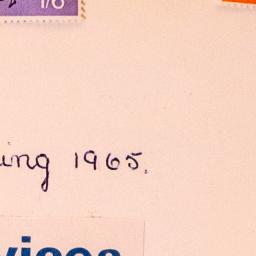 1/6
ing 1965.
vices